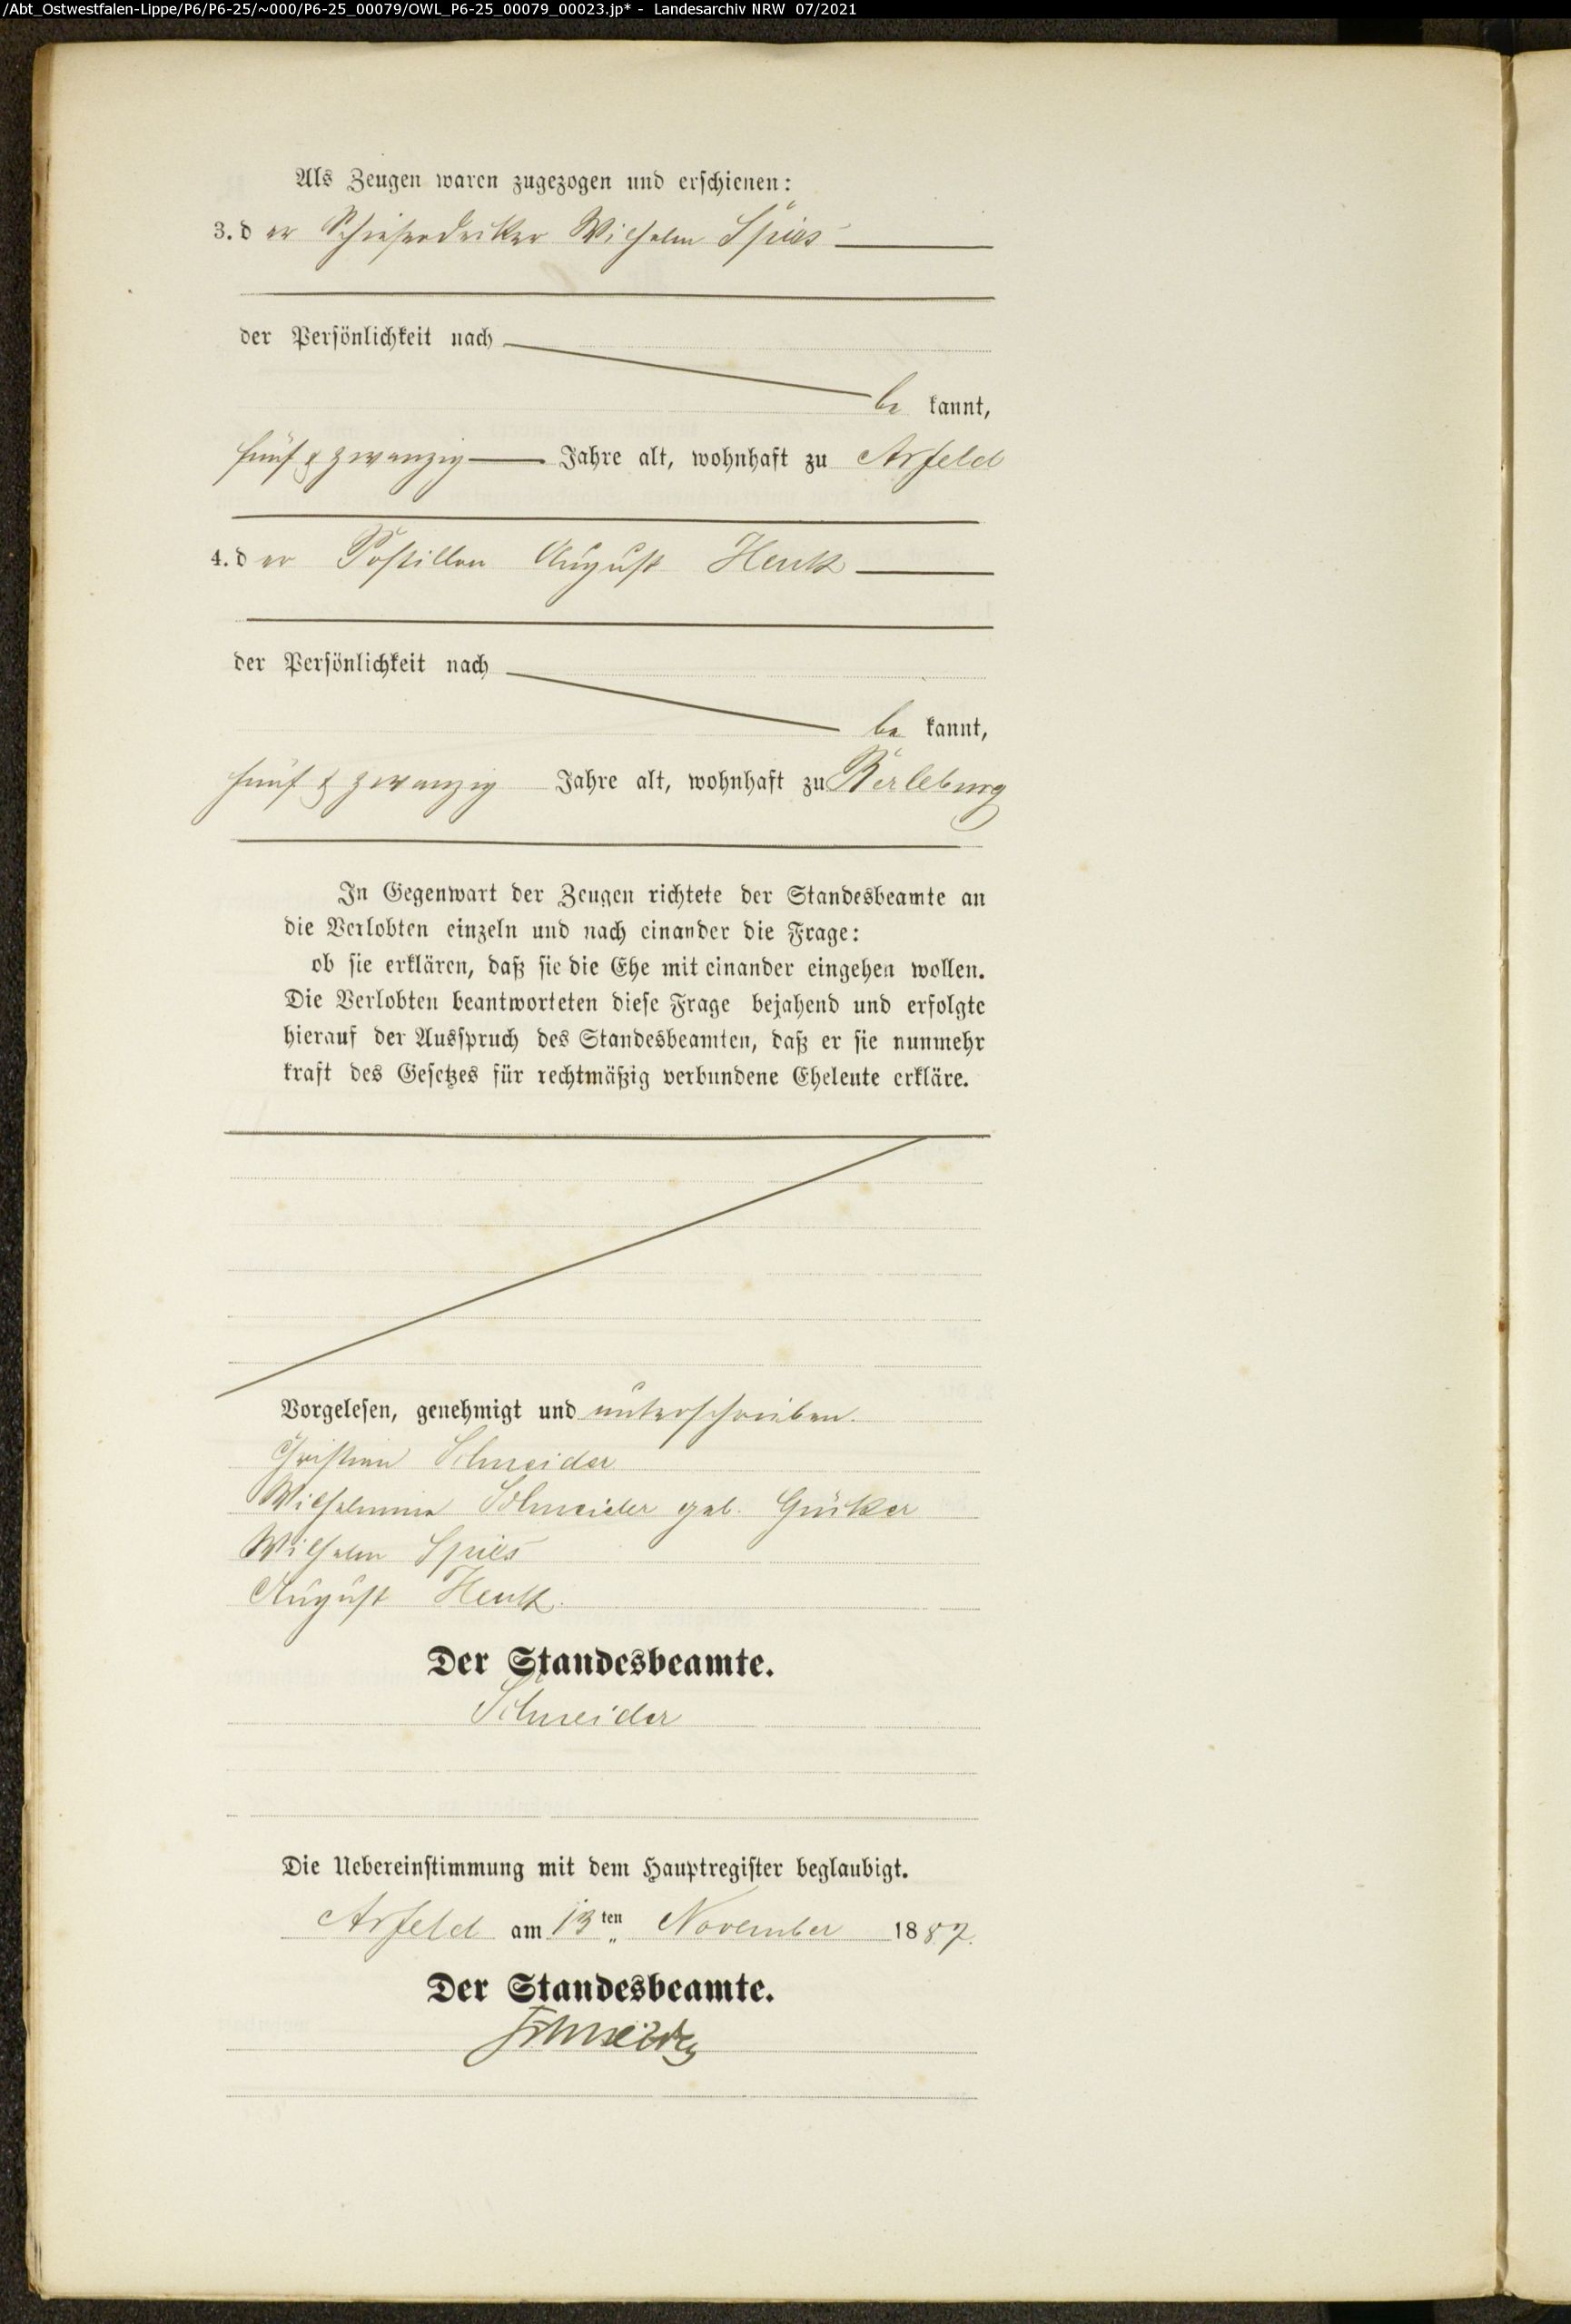 /Abt_Ostwestfalen-Lippe/P6/P6-25/~000/P6-25_00079/OWL_P6-25_00079_00023.jp* - Landesarchiv NRW 07/2021
Als Zeugen waren zugezogen und erschienen:
3. der Schieferdecker Wilhelm Spies
der Persönlichkeit nach
be kannt,
fünf & zwanzig Jahre alt, wohnhaft zu Arfeld
4. der Postillon August Henk
der Persönlichkeit nach
be kannt,
fünf & zwanzig Jahre alt, wohnhaft zu Berleburg
In Gegenwart der Zeugen richtete der Standesbeamte an
die Verlobten einzeln und nach einander die Frage:
ob sie erklären, daß sie die Ehe mit einander eingehen wollen.
Die Verlobten beantworteten diese Frage bejahend und erfolgte
hierauf der Ausspruch des Standesbeamten, daß er sie nunmehr
kraft des Gesetzes für rechtmäßig verbundene Eheleute erkläre.
Vorgelesen, genehmigt und unterschrieben.
Christian Schneider
Wilhelmine Schneider geb. Grüker
Wilhelm Spies
August Henk.
Der Standesbeamte.
Schneider
Die Uebereinstimmung mit dem Hauptregister beglaubigt.
Arfeld am 13ten November 1887.
Der Standesbeamte.
Schneider